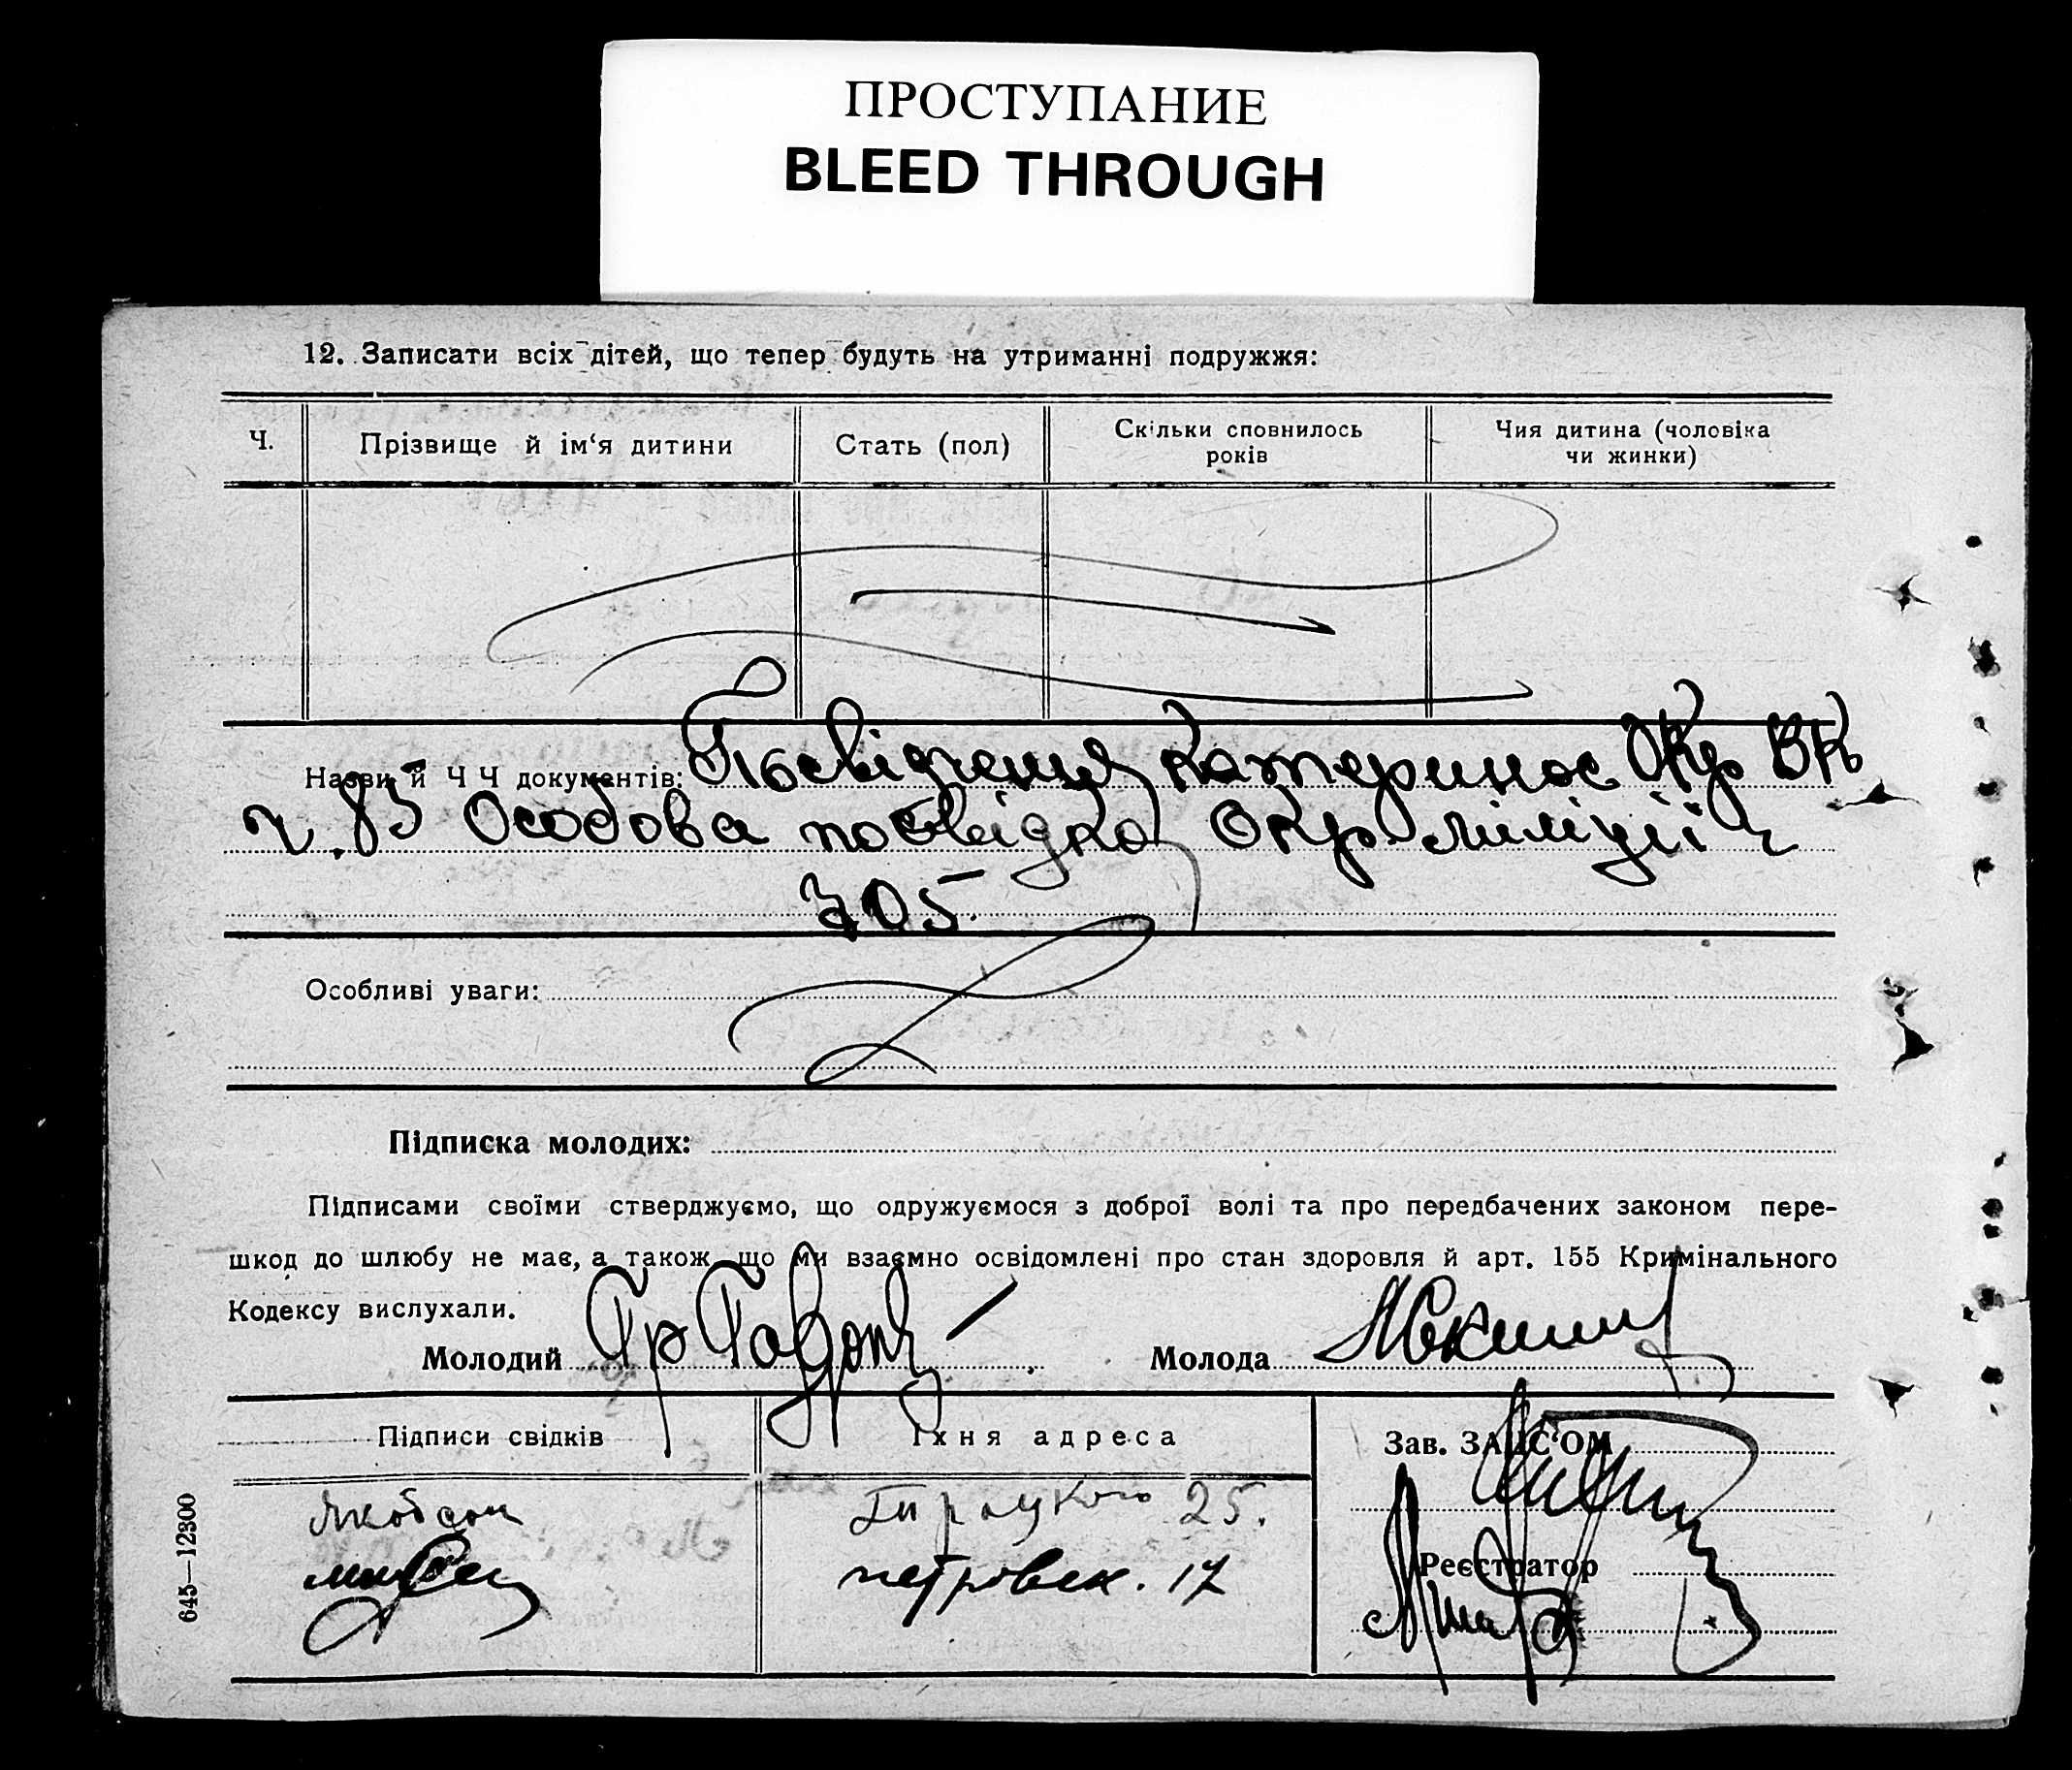 ПРОСТУПАНИЕ
BLEED THROUGH
12. Записати всіх дітей, що тепер будуть на утриманні подружжя:
Ч.
Прізвище й ім‘я дитини
Стать (пол)
Скільки сповнилось
років
Чия дитина (чоловіка
чи жинки)
Назви й Ч Ч документів: Посвідчення Катеринос Окр ВК
ч. 85 Особова посвідка Окр міліції ч
705
Особливі уваги:
Підписка молодих:
Підписами своїми стверджуємо, що одружуємося з доброї волі та про передбачених законом пере-
шкод до шлюбу не має, а також що ми взаємно освідомлені про стан здоровля й арт. 155 Кримінального
Кодексу вислухали.
Молодий
Молода
Підписи свідків
Їхня адреса
Зав. ЗАПС‘ОМ
Якобсон
25.
петровск. 17
Реєстратор
645—12300